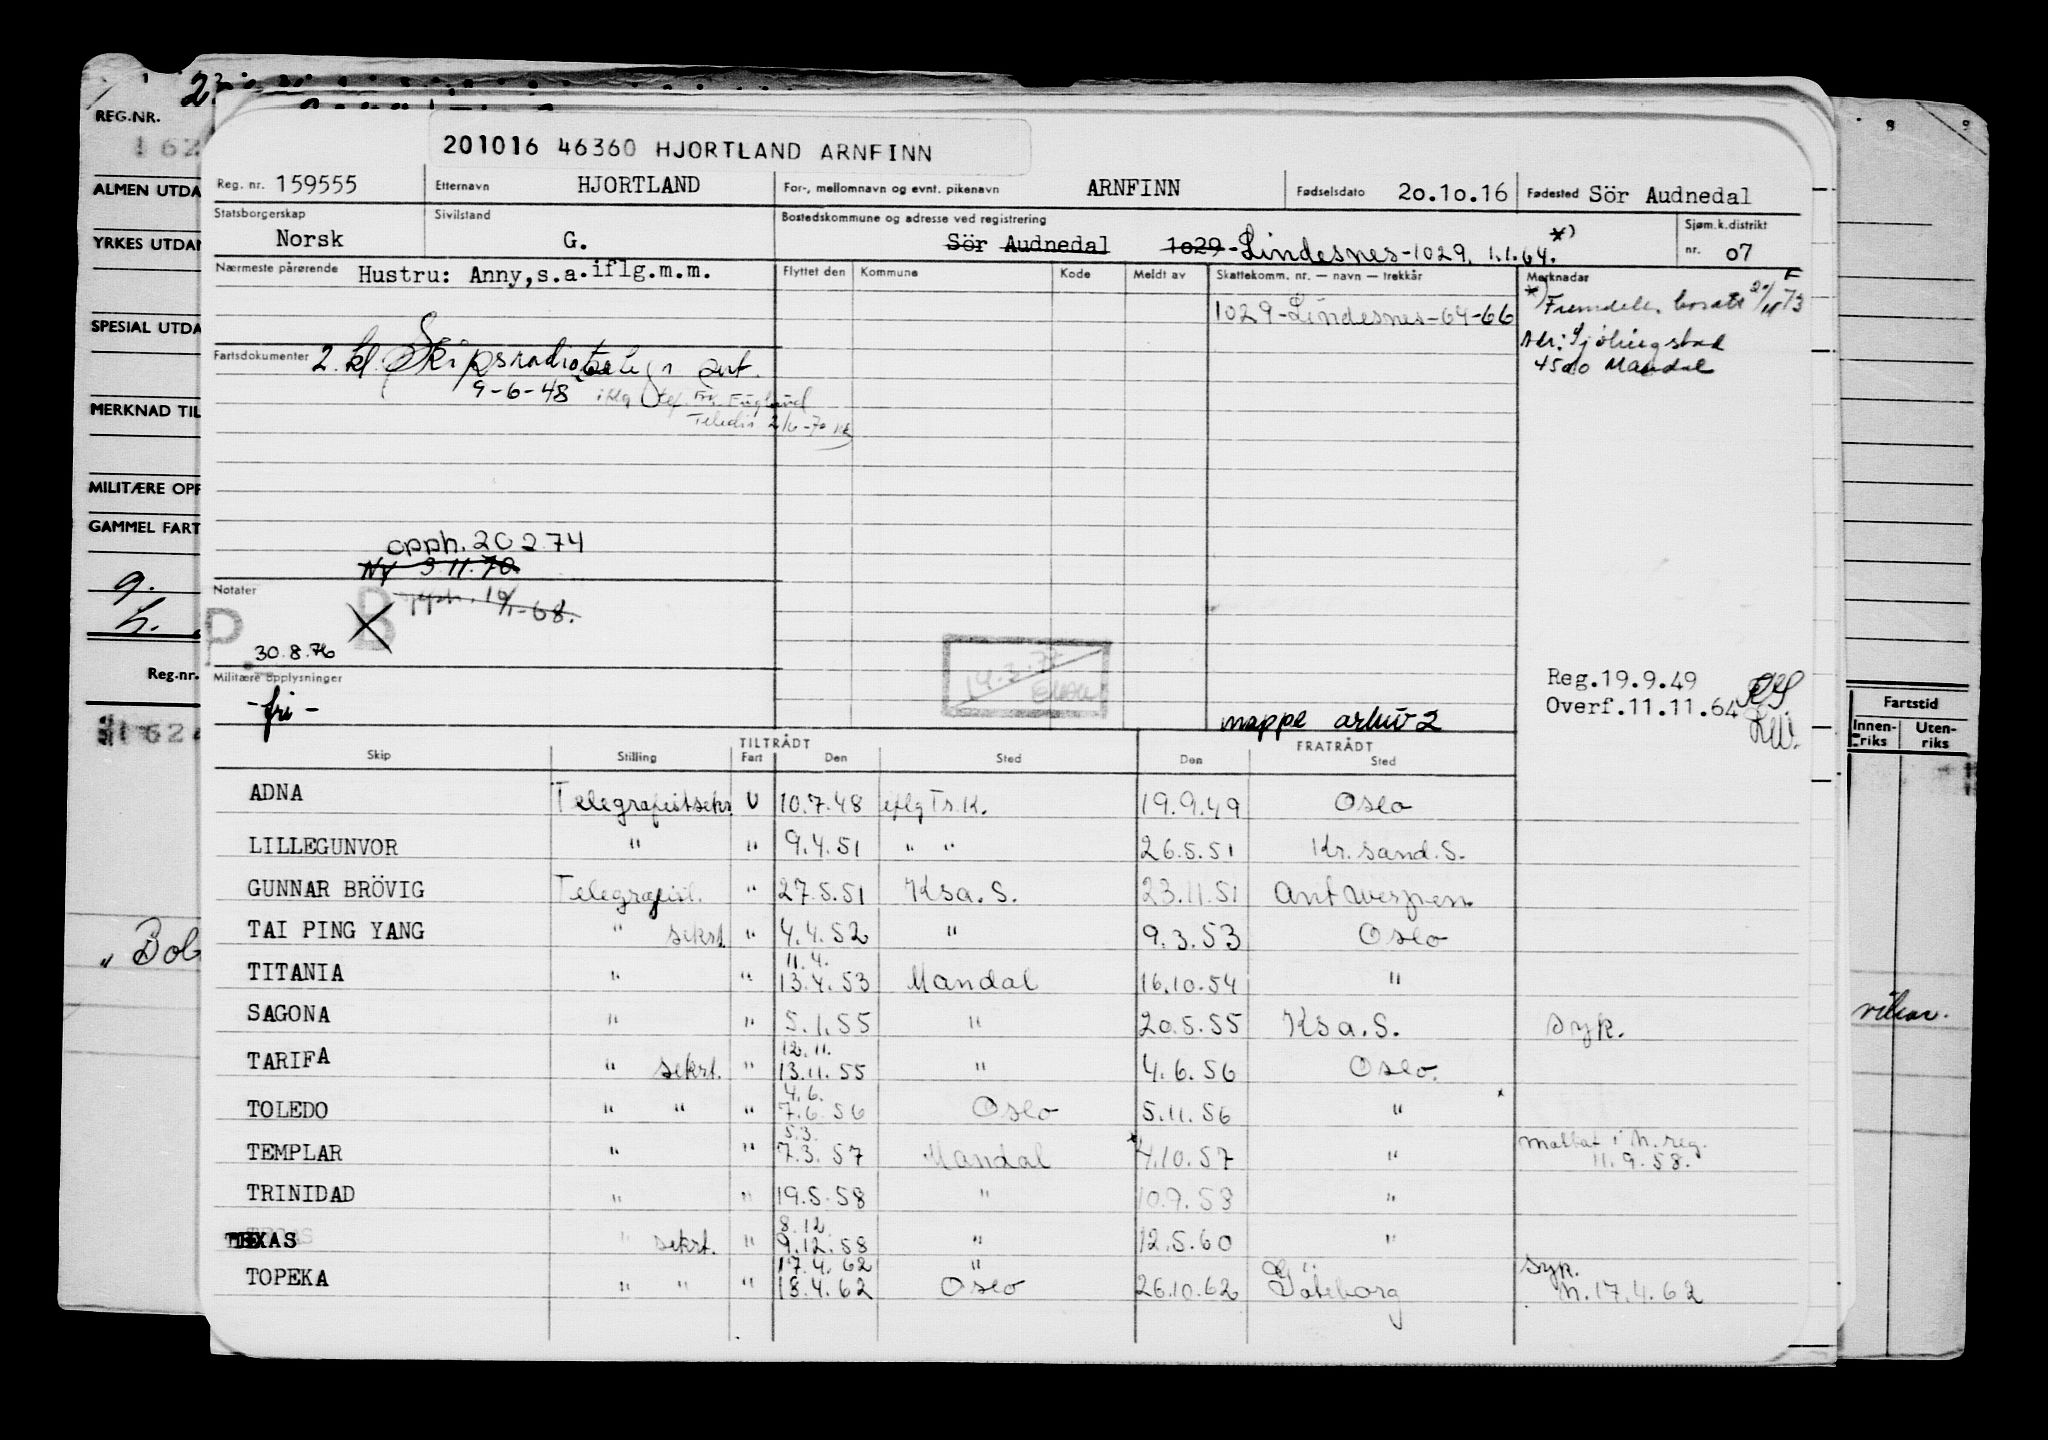 REG.NR.
162
ALMEN UTDA
YRKES UTDAN
SPESIAL UTDA
MERKNAD TIL
MILITÆRE OPP
GAMMEL FART
Reg.nr.
162
„ Bob
201016 46360 HJORTLAND ARNFINN
Reg. nr. 159555 Etternavn HJORTLAND For-, mellomnavn og evnt. pikenavn ARNFINN Fødselsdato 20.10.16 Fødested Sör Audnedal
Statsborgerskap Norsk Sivilstand G. Bostedskommune og adresse ved registrering Sör Audnedal 1029-Lindesnes-1029. 1.1.64. *) Sjøm.k.distrikt nr. 07
Nærmeste pårørende Hustru: Anny,s.a.iflg.m.m. Flyttet den Kommune Kode Meldt av Skattekomm. nr. — navn — trekkår Merknadar
1029-Lindesnes-64-66
*) Fremdeles bosatt
Adr:
4500 Mandal
Fartsdokumenter 2. kl. Skipsradiotelegr
9-6-48
opph. 20 2 74
Ny 3 11.70
Notater
P. B
30.8.76
Militære opplysninger
- fri -
mappe arkiv 2
Reg.19.9.49
Overf.11.11.64
TILTRÅDT FRATRÅDT
Skip Stilling Fart Den Sted Den Sted
ADNA Telegrafistsekr U 10.7.48 iflg Tr.K. 19.9.49 Oslo
LILLEGUNVOR " " 9.4.51 " " 26.5.51 Kr.sand.S.
GUNNAR BRÖVIG Telegrafist. " 27.5.51 Ksa.S. 23.11.51 Antwerpen
TAI PING YANG " sekrt. " 4.4.52 " 9.3.53 Oslo
11.4.
TITANIA " " 13.4.53 Mandal 16.10.54 "
SAGONA " " 5.1.55 " 20.5.55 Ksa.S. syk.
12.11.
TARIFA " sekrt. " 13.11.55 " 4.6.56 Oslo.
4.6.
TOLEDO " " " 7.6.56 Oslo 5.11.56 "
5.3.
TEMPLAR " " 7.3.57 Mandal 4.10.57 " i N.reg.
11.9.58.
TRINIDAD " " 19.5.58 " 10.9.58 "
8.12
TEXAS " sekrt. " 9.12.58 " 12.5.60 "
17.4.62 " syk.
TOPEKA " " " 18.4.62 Oslo 26.10.62 Göteborg N.17.4.62
Fartstid
Innen-riks Uten-riks